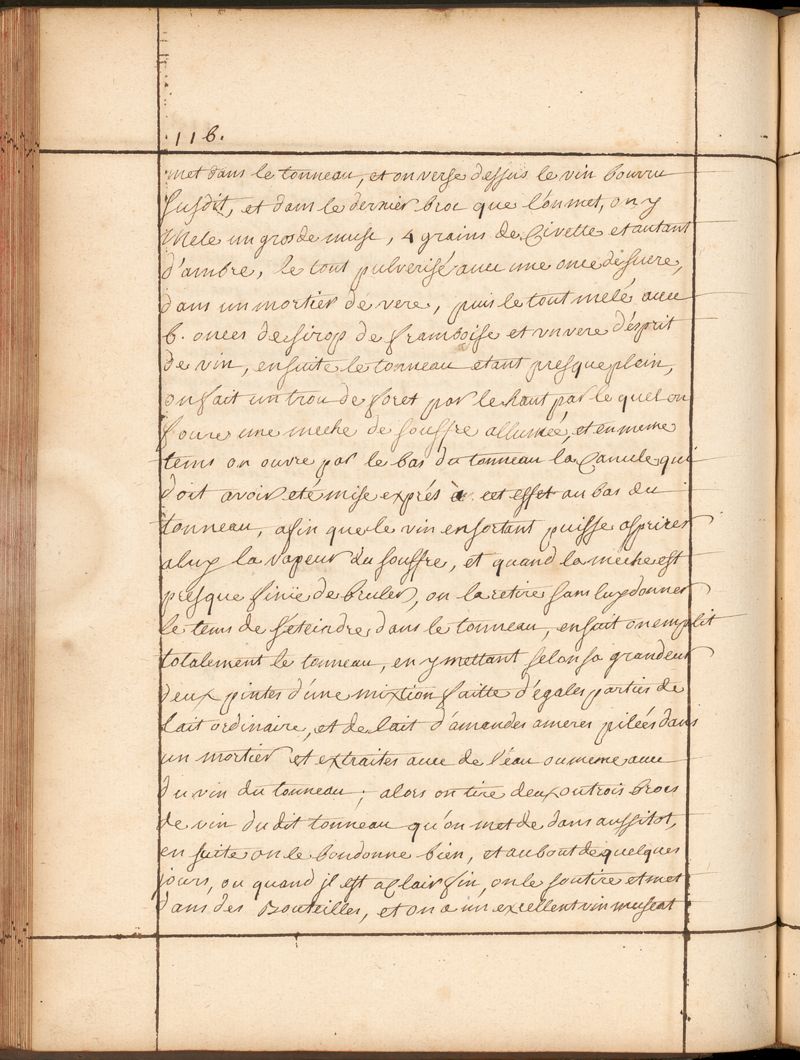 .116.
met dans le tonneau, et on verse dessus le vin bourru
susdit, et dans le dernier broc que l'on met, on y
Mele un gros de musc, 4 grains de Civette et autant
d'ambre, le tout pulverisé avec une once de sucre,
dans un mortier de vere, puis le tout melé avec
6. onces de sirop de framboise et un vere d'esprit
de vin, ensuite le tonneau etant presque plein,
on fait un trou de foret par le haut par le quel on
foure une meche de souffre allumée, et en meme
tems on ouvre par le bas du tonneau la Canule qui
doit avoir eté mise exprés à cet effet au bas du
tonneau, afin que le vin en sortant puisse aspirer
a luy la vapeur du souffre, et quand la meche est
presque finie de bruler, on la retire sans luy donner
le tems de s'eteindre dans le tonneau, ensuit on emplit
totalement le tonneau, en y mettant selon sa grandeur
deux pintes d'une mixtion faitte d'égales parties de
lait ordinaire, et de lait d'amandes ameres pilées dans
un mortier et extraites avec de l'eau ou meme avec
du vin du tonneau ; alors on tire deux ou trois brocs
de vin du dit tonneau qu'on met de dans aussitot,
en suite on le bondonne bien, et au bout de quelques
jours, ou quand il est a clair fin, on le soutire et met
dans des Bouteilles, et on a un excellent vin muscat